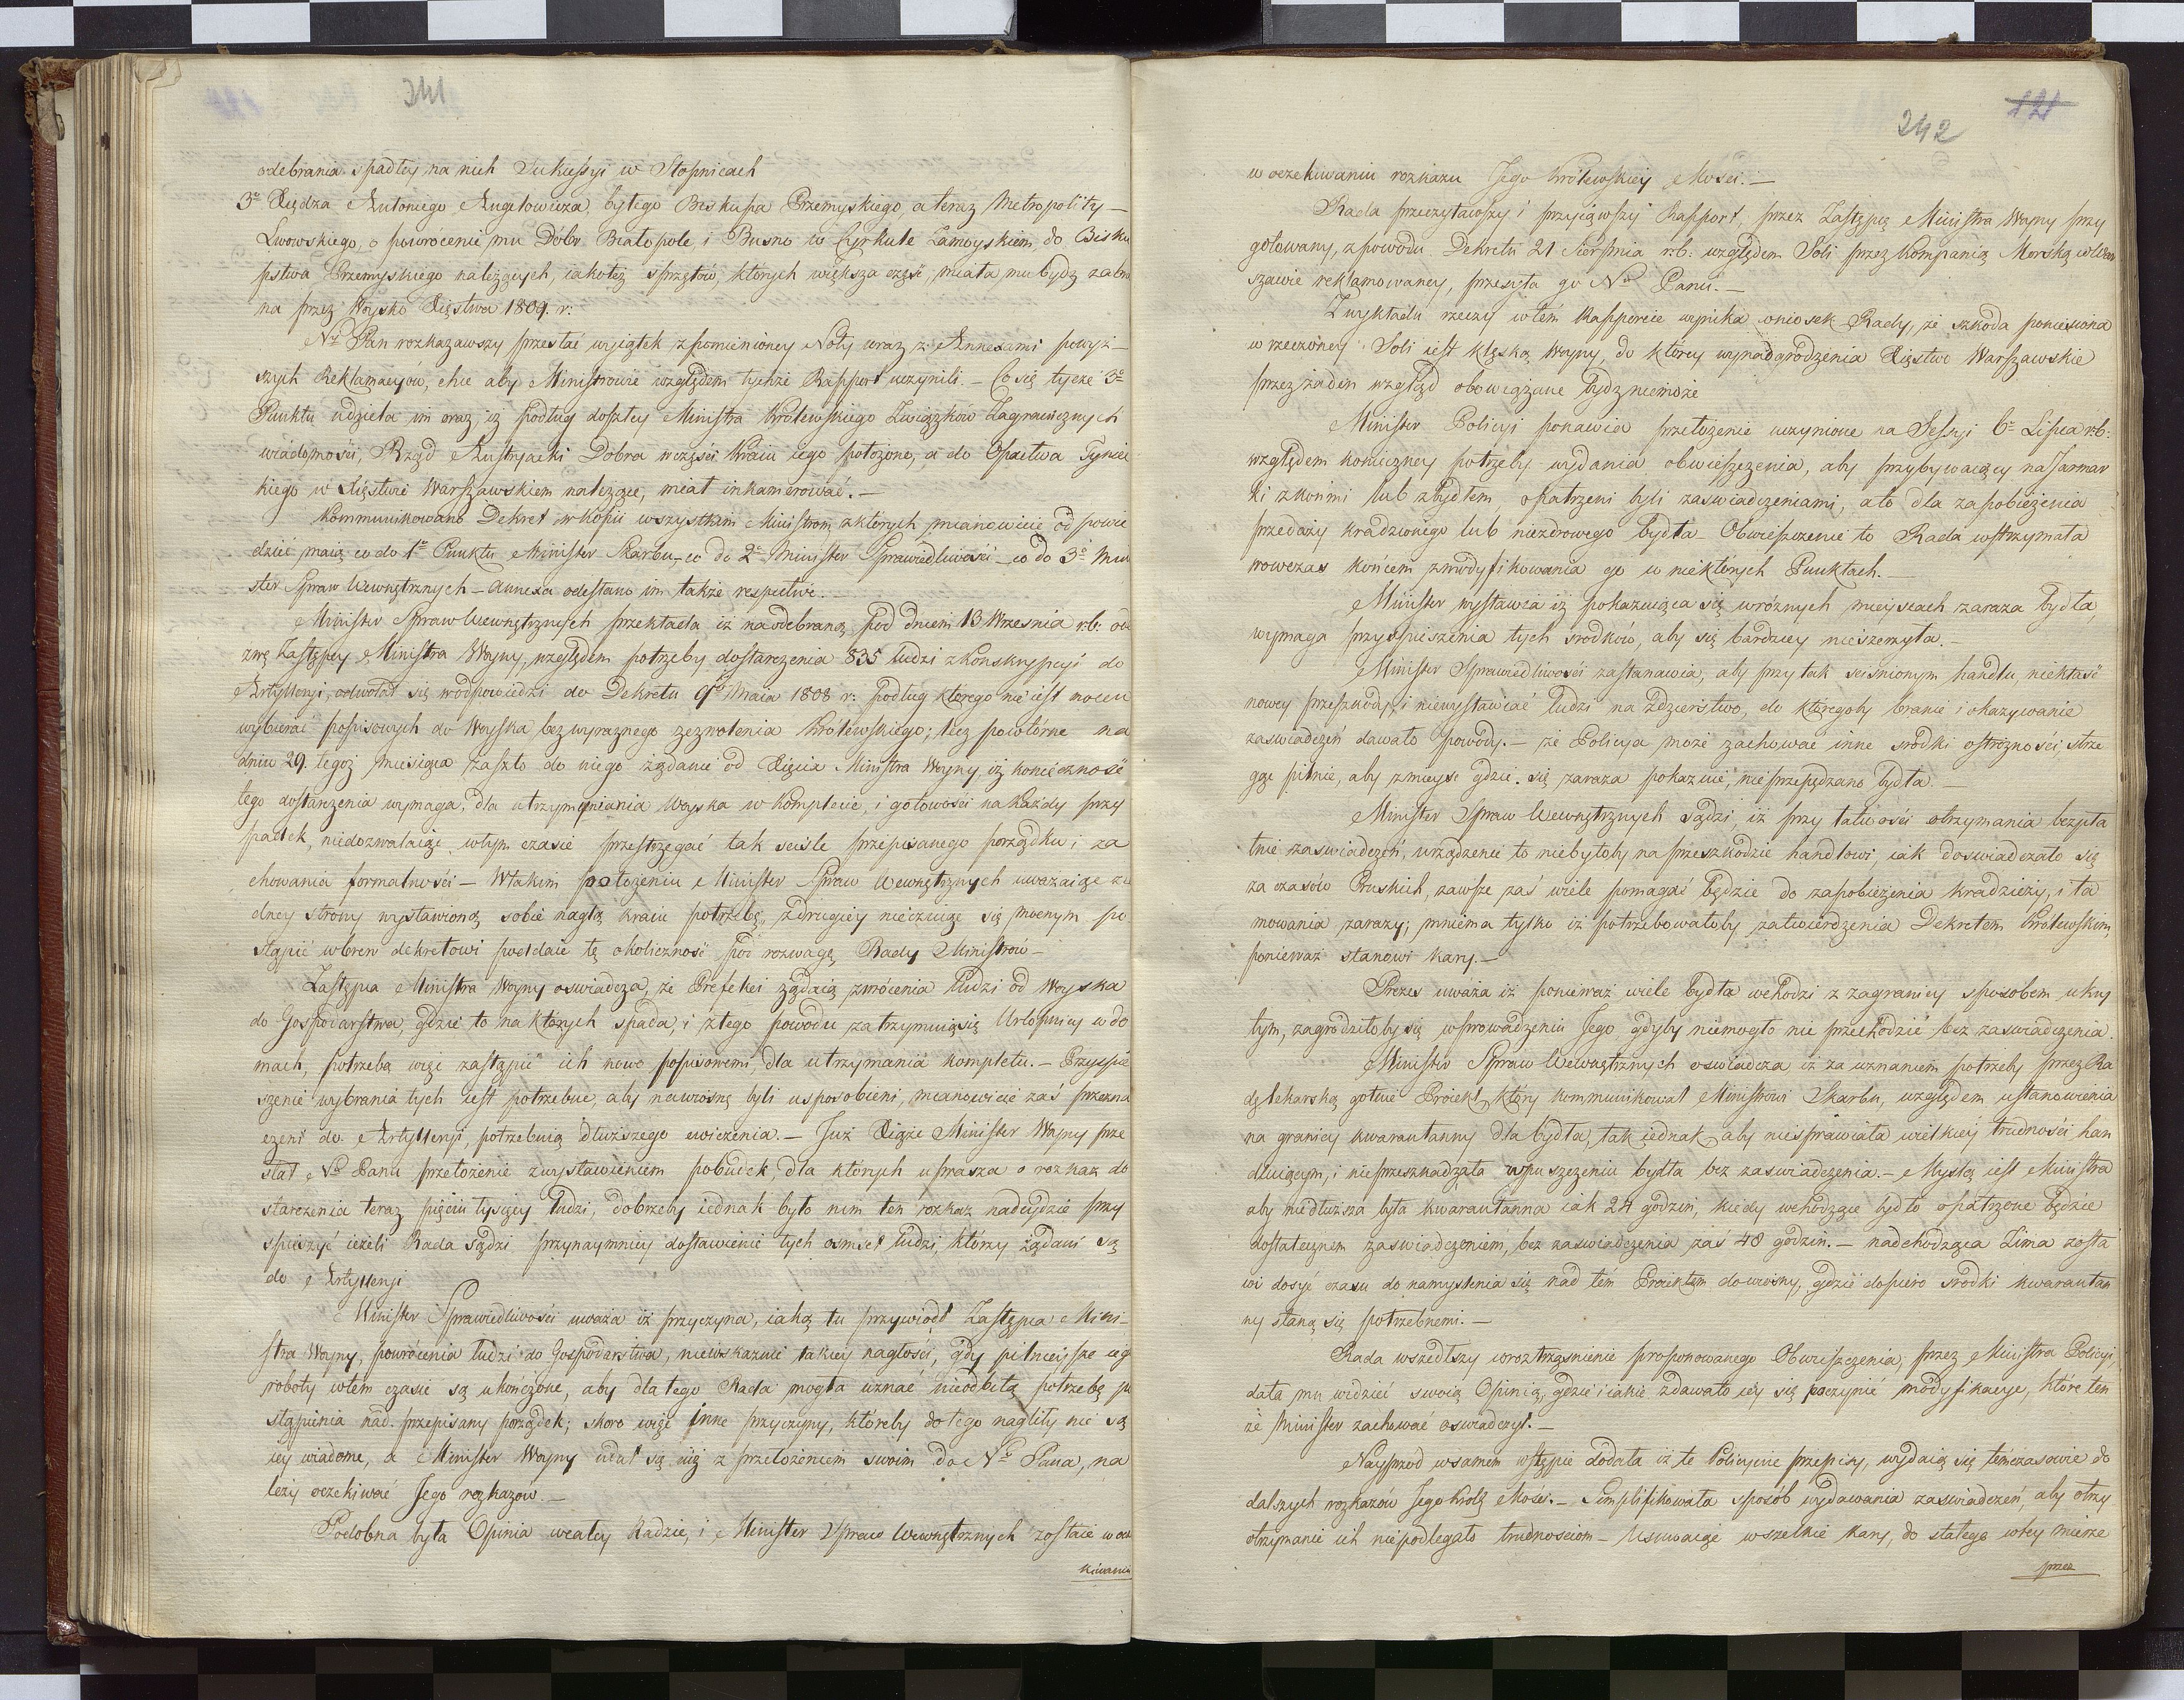 341
odebrania spadłey na nich Sukcessyi w Stopnicach
3o Xiędza Antoniego Angełowicza, byłego Biskupa Przemyskiego, a teraz Metropolity
Lwowskiego, o powrócenie mu Dóbr Białopole i Busno w Cyrkule Zamoyskiem do Bisku
pstwa Przemyskiego należących, iakoteż sprzętów, których większa część, miała mu bydź zabra
na przez Woysko Xięstwa 1809. r:
Nay. Pan rozkazawszy przesłać wyiątek z pomienioney Noty wraz z Annexami powyż-
szych Reklamacyow, chce aby Ministrowie względem tychże Rapport uczynili. - Co się tycze 3o
Punktu udziela im oraz, iż podług doszłey Ministra Królewskiego Związków Zagranicznych
wiadomości, Rząd Austryacki Dobra w części Kraiu iego położone, a do Opactwa Tyniec
kiego w Xięstwie Warszawskiem należące, miał inkamerować. -
Kommunikowano Dekret w kopii wszystkim Ministrom z których mianowicie odpowie
dzieć maią co do 1o Punktu Minister Skarbu - co do 2o Minister Sprawiedliwości - co do 3o Mini
ster Spraw Wewnętrznych - Annexa odesłano im także respective. -
Minister Spraw Wewnętrznych przekłada iż na odebraną pod dniem 13 Września r.b: ode
zwę Zastępcy Ministra Woyny, względem potrzeby dostarczenia 835 ludzi z Konskrypcyi do
Artylleryi, odwołał się w odpowiedzi do Dekretu 9go Maia 1808 r: podług którego nie iest mocen
wybierać popisowych do Woyska bez wyraznego zezwolenia Królewskiego; lecz powtórne na
dniu 29. tegoż miesiąca zaszło do niego żądanie od Xięcia Ministra Woyny, iż konieczność
tego dostarczenia wymaga, dla utrzymywania Woyska w komplecie, i gotowości na każdy przy
padek, niedozwalaiąc w tym czasie przestrzegać tak ściśle przepisanego porządku i za
chowania formalności - W takim położeniu Minister Spraw Wewnętrznych uważaiąc z ie
dney strony wystawioną sobie nagłą kraiu potrzebę, z drugiey nieczuiąc się mocnym po
stąpić wbrew dekretowi poddaie tę okoliczność pod rozwagę Rady Ministrów -
Zastępca Ministra Woyny oswiadcza, że Prefekci żądaią zwrócenia ludzi od Woyska
do Gospodarstwa, gdzie to na których spada, i z tego powodu zatrzymuią się Urlopnicy w do
mach, potrzeba więc zastąpić ich nowo popisowemi, dla utrzymania kompletu. - Przyspie
szenie wybrania tych iest potrzebne, aby na wiosnę byli usposobieni, mianowicie zaś przezna
czeni do Artylleryi, potrzebuią dłuższego cwiczenia. - Już Xiąże Minister Woyny prze
słał Nay. Panu przełożenie z wystawieniem pobudek, dla których uprasza o rozkaz do
starczenia teraz pięciu tysięcy ludzi, dobrzeby iednak było nim ten rozkaz nadeydzie przy
spieszyć ieżeli Rada sądzi przynaymniey dostawienie tych osmset ludzi, którzy żądani są
do Artylleryi
Minister Sprawiedliwości uważa iż przyczyna, iaką tu przywiódł Zastępca Mini-
stra Woyny, powrócenia ludzi do Gospodarstwa, niewskazuie takiey nagłości, gdy pilnieysze iego
roboty w tem czasie są ukończone, aby dla tego Rada mogła uznać nieodbitą potrzebę po
stąpienia nad przepisany porządek; skoro więc inne przyczyny, któreby do tego nagliły nie są
iey wiadome, a Minister Woyny udał się iuż z przełożeniem swoim do Nay. Pana, na
leży oczekiwać Jego rozkazow. -
Podobna była Opinia w całey Radzie, i Minister Spraw Wewnętrznych zostaie w ocze
kiwaniu
121
242
w oczekiwaniu rozkazu Jego Królewskiey Mości. -
Rada przeczytawszy i przyiąwszy Rapport, przez Zastępcę Ministra Woyny przy
gotowany, z powodu Dekretu 21 Sierpnia r.b: względem Soli przez Kompanią Morską w War
szawie reklamowaney, przesyła go Nay. Panu. -
Z wykładu rzeczy w tém Rapporcie wynika wniosek Rady, że szkoda poniesiona
w rzeczoney Soli iest klęską Woyny, do którey wynadgrodzenia Xięstwo Warszawskie
przez żaden wzgląd obowiązane bydź niemoże
Minister Policyi ponawia przełożenie uczynione na Sessyi 6o Lipca r.b:
względem konieczney potrzeby wydania obwieszczenia, aby przybywaiący na Jarmar
ki z końmi lub z bydłem, opatrzeni byli zaswiadczeniami, a to dla zapobieżenia
przedaży kradzionego lub niezdrowego bydła - Obwieszczenie to Rada wstrzymała
wowczas końcem zmodyfikowania go w niektórych Punktach. -
Minister wystawia iż pokazuiąca się w różnych mieyscach zaraza bydła,
wymaga przyspieszenia tych srodków, aby się bardziey nieszerzyła. -
Minister Sprawiedliwości zastanawia, aby przy tak scisnionym handlu, niekłaść
nowey przeszkody, i niewystawiać ludzi na zdzierstwo, do któregoby branie i okazywanie
zaswiadczeń dawało powody. - że Policya może zachować inne srodki ostrożności, strze
gąc pilnie, aby z mieysc gdzie się zaraza pokazuie, nieprzepędzano bydła. -
Minister Spraw Wewnętrznych sądzi, iż przy łatwości otrzymania bezpła
tnie zaswiadczeń, urządzenie to niebyłoby na przeszkodzie handlowi, iak doswiadczało się
za czasów Pruskich, zawsze zaś wiele pomagać będzie do zapobieżenia kradzieży, i ta
mowania zarazy; mniema tylko iż potrzebowałoby zatwierdzenia Dekretem Królewskim
ponieważ stanowi kary. -
Prezes uważa iż ponieważ wiele bydła wchodzi z zagranicy sposobem ukry
tym, zagrodziłoby się wprowadzeniu Jego gdyby niemogło nie przechodzić bez zaswiadczenia.
Minister Spraw Wewnętrznych oswiadcza iż za uznaniem potrzeby przez Ra
dę lekarską gotuie Proiekt, który kommunikował Ministrowi Skarbu, względem ustanowienia
na granicy kwarantanny dla bydła, tak iednak, aby niesprawiała wielkiey trudności han
dluiącym, i nieprzeszkadzała wpuszczeniu bydła bez zaswiadczenia. - Myslą iest Ministra
aby niedłuższa była kwarantanna iak 24 godzin, kiedy wchodzące bydło opatrzone będzie
dostatecznem zaswiadczeniem, bez zaswiadczenia zaś 48 godzin. - nadchodząca Zima zosta
wi dosyć czasu do namyslenia się nad tém Proiektem do wiosny, gdzie dopiero srodki kwarantan
ny staną się potrzebnemi. -
Rada wszedłszy w roztrząsnienie proponowanego Obwieszczenia, przez Ministra Policyi,
dała mu widzieć swoią Opinią, gdzie i iakie zdawało iey się poczynić modyfikacye, które ten
że Minister zachować oswiadczył. -
Nayprzod w samem wstępie dodała iż te Policyine przepisy, wydaią się témczasowie do
dalszych rozkazów Jego Królq Mości. - Simplifikowała sposób wydawania zaswiadczeń, aby otrzy
otrzymanie ich niepodlegało trudnosciom - Usuwaiąc wszelkie kary, do stałego w tey mierze
przez